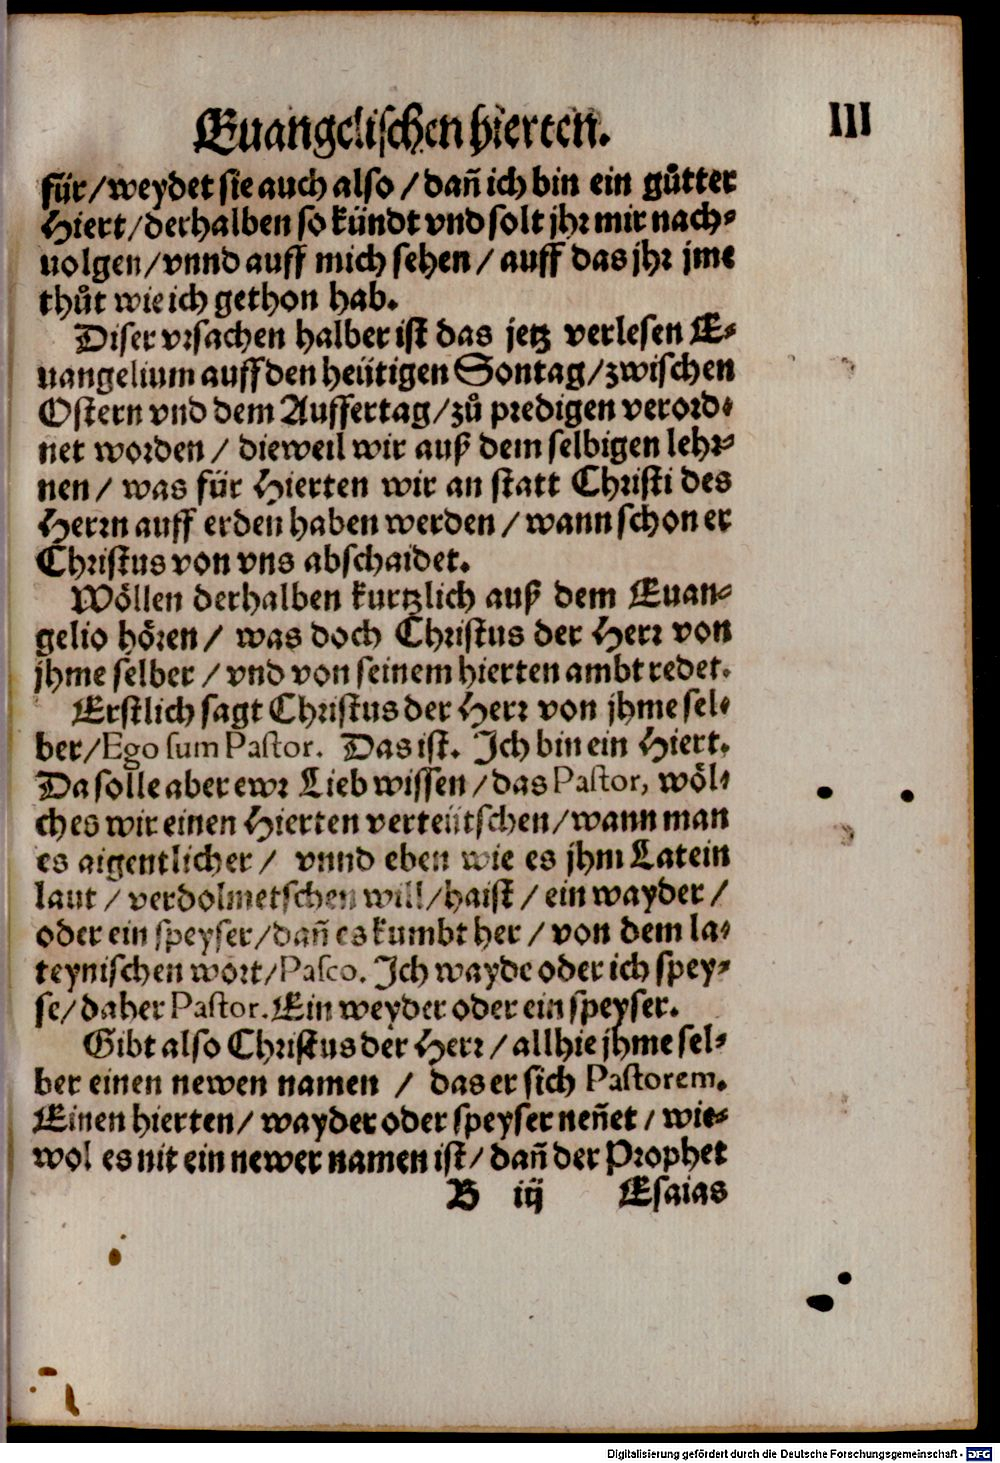 Euangelischen hierten.
III
für/weydet sie auch also/dañ ich bin ein gůtter
Hiert/derhalben so kündt vnd solt jhr mir nach-
uolgen/vnnd auff mich sehen/auff das jhr jme
thůt wie ich gethon hab.
Diser vrsachen halber ist das jetz verlesen E-
uangelium auff den heütigen Sontag/zwischen
Ostern vnd dem Auffertag/zů predigen verord-
net worden/dieweil wir auß dem selbigen lehr-
nen/was für Hierten wir an statt Christi des
Herrn auff erden haben werden/wann schon er
Christus von vns abschaidet.
Wöllen derhalben kurtzlich auß dem Euan-
gelio hören/was doch Christus der Herr von
jhme selber/vnd von seinem hierten ambt redet.
Erstlich sagt Christus der Herr von jhme sel-
ber/Ego sum Pastor. Das ist. Ich bin ein Hiert.
Da solle aber ewr Lieb wissen/das Pastor, wöl-
ches wir einen Hierten verteütschen/wann man
es aigentlicher/vnnd eben wie es jhm Latein
laut/verdolmetschen will/haist/ein wayder/
oder ein speyser/dañ es kumbt her/von dem la-
teynischen wort/Pasco. Ich wayde oder ich spey-
se/daher Pastor. Ein weyder oder ein speyser.
Gibt also Christus der Herr/allhie jhme sel-
ber einen newen namen/das er sich Pastorem.
Einen hierten/wayder oder speyser neñet/wie-
wol es nit ein newer namen ist/dañ der Prophet
B iij Esaias
Digitalisierung gefördert durch die Deutsche Forschungsgemeinschaft - DFG